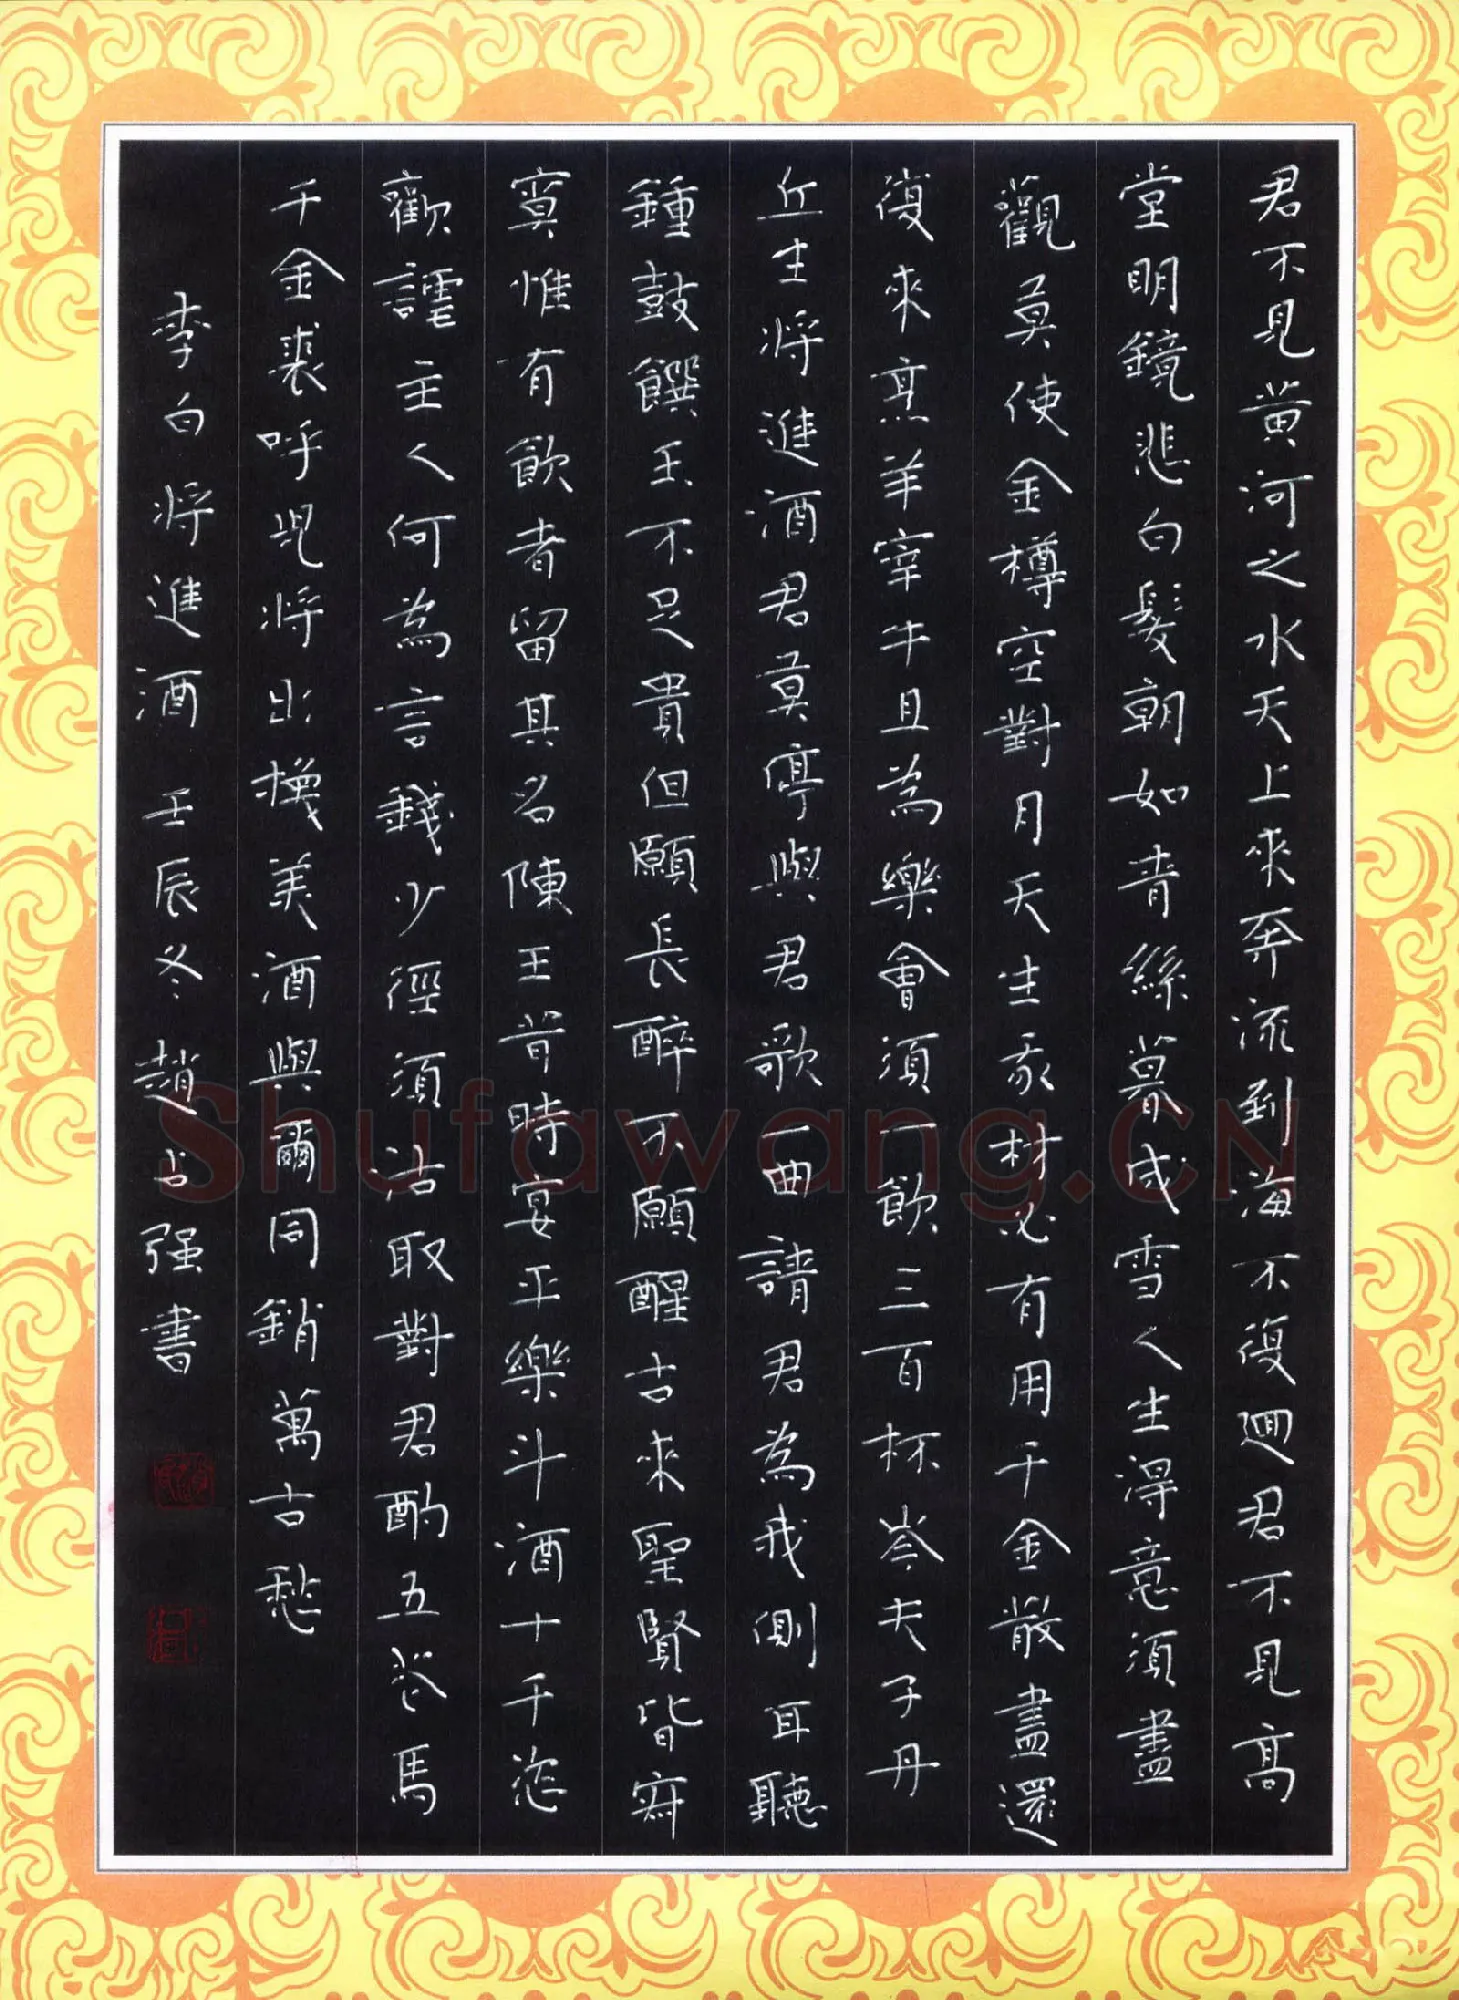 君不見黄河之水天上來奔流到海不復迴君不見高
堂明鏡悲白髮朝如青絲暮成雪人生得意須盡
觀莫使金樽空對月天生我材必有用千金散盡還
復來烹羊宰牛且為樂會須一飲三百杯岑夫子丹
丘生將進酒君莫停與君歌一曲請君為我側耳聽
鍾鼓饌玉不足貴但願長醉不願醒古來聖賢皆寂
寞惟有飲者留其名陳王昔時宴平樂斗酒十千恣
歡謔主人何為言錢少徑須沽取對君酌五花馬
千金裘呼児將出換美酒與爾同銷萬古愁
李白將進酒 壬辰冬趙占强書
Shufawang.CN